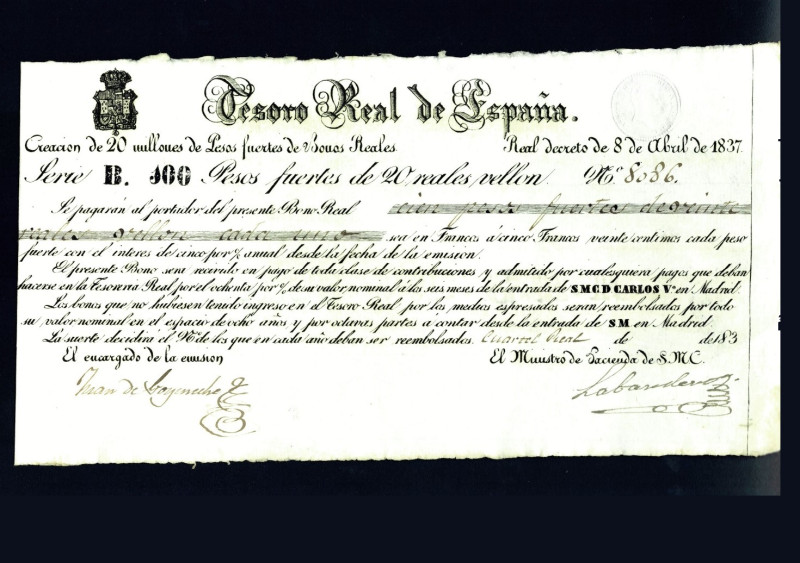 Tesoro Real de España.
Creacion de 20 millones de Pesos fuertes de Bonos Reales. Real decreto de 8 de Abril de 1837.
Serie B. 100 Pesos fuertes de 20 reales vellon. Nº 8086.
Se pagarán al portador del presente Bono Real cien pesos fuertes de veinte
reales vellon cada uno sea en Francos á cinco Francos veinte centimos cada peso
fuerte con el interes de cinco por % anual desde la fecha de la emision.
El presente Bono sera recivido en pago de toda clase de contribuciones y admitido por cualesquiera pagos que deban
hacerse en la Tesoreria Real por el ochenta por % de su valor nominal á los seis meses de la entrada de S M C D CARLOS Vº en Madrid.
Los bonos que no hubiesen tenido ingreso en el Tesoro Real por los medios espresados seran reembolsados por todo
su valor nominal en el espacio de ocho años y por octavas partes á contar desde la entrada de S M en Madrid.
La suerte decidira el Nº de los que en cada año deban ser reembolsados. Cuartel Real de de 183
El encargado de la emision El Ministro de Hacienda de S.M.C.
Juan de Goyeneche Labandero